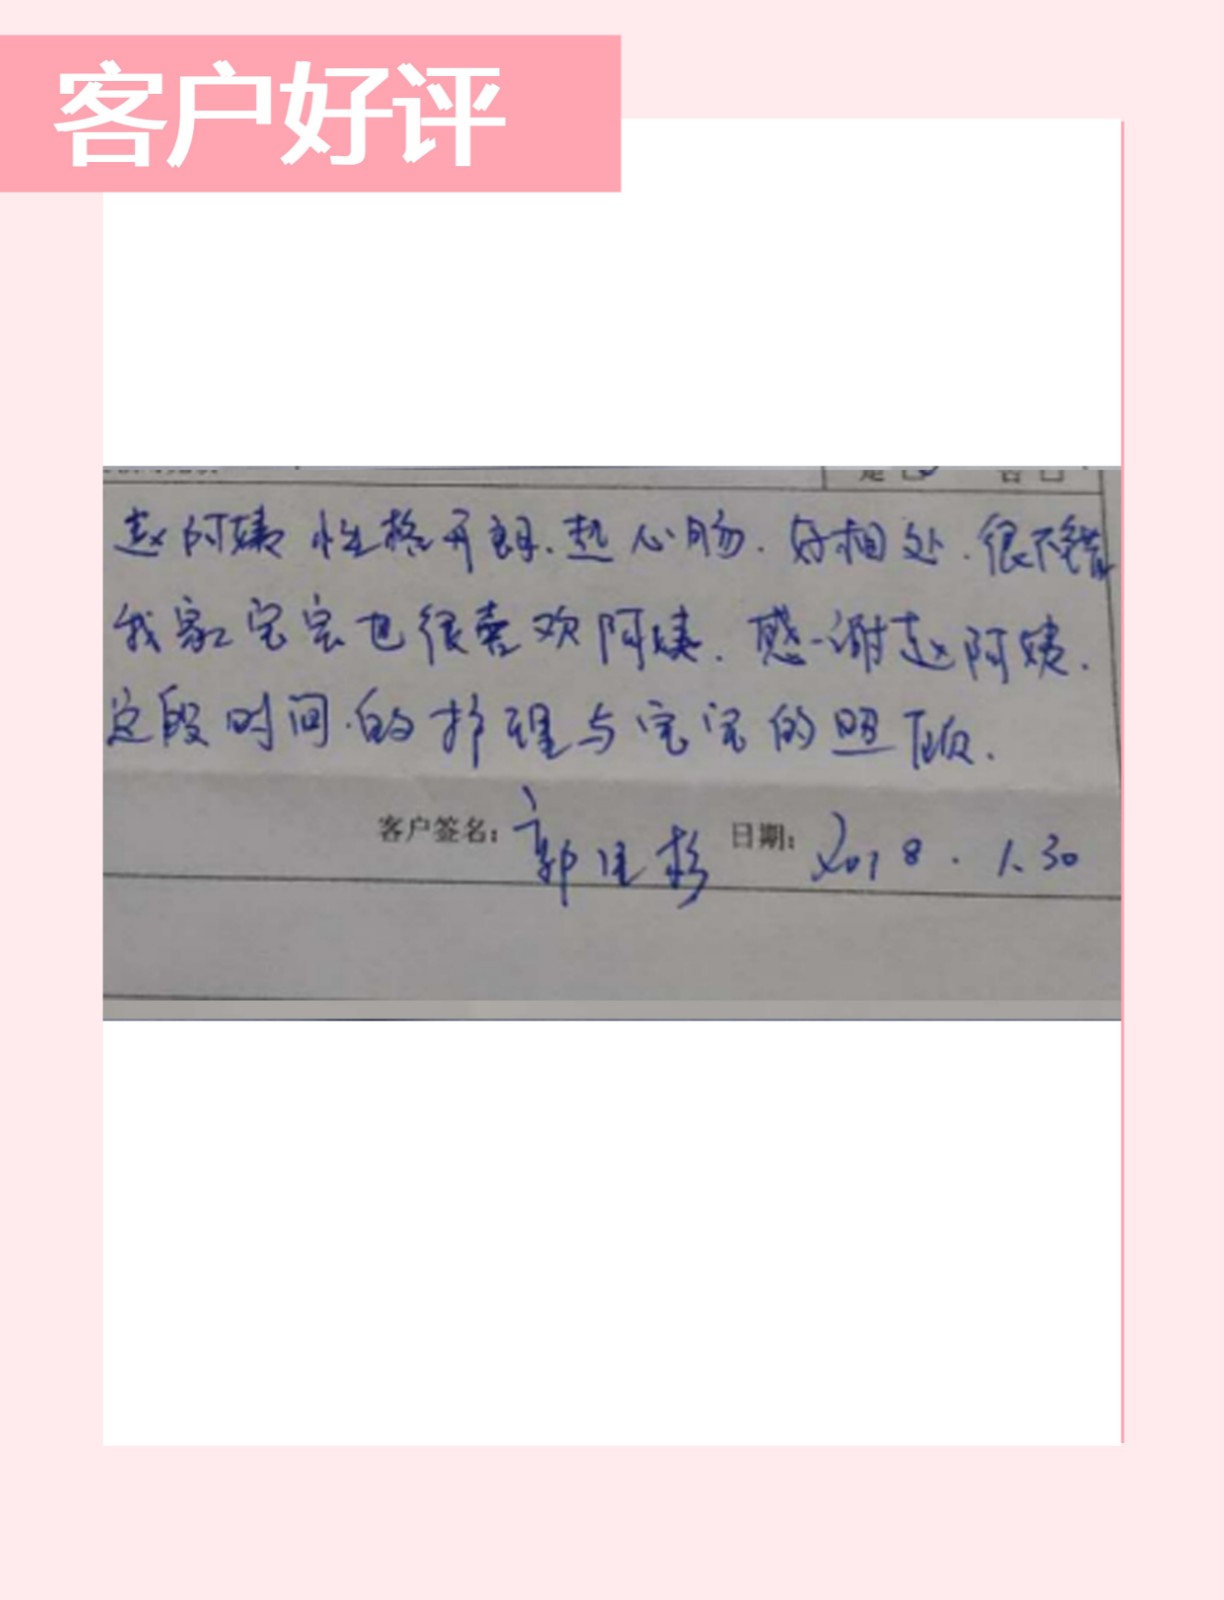 客户好评
是 否
赵阿姨性格开朗、热心肠、好相处、很不错
我家宝宝也很喜欢阿姨、感谢赵阿姨、
这段时间的护理与宝宝的照顾、
客户签名：郭佳杉 日期：2018.1.30